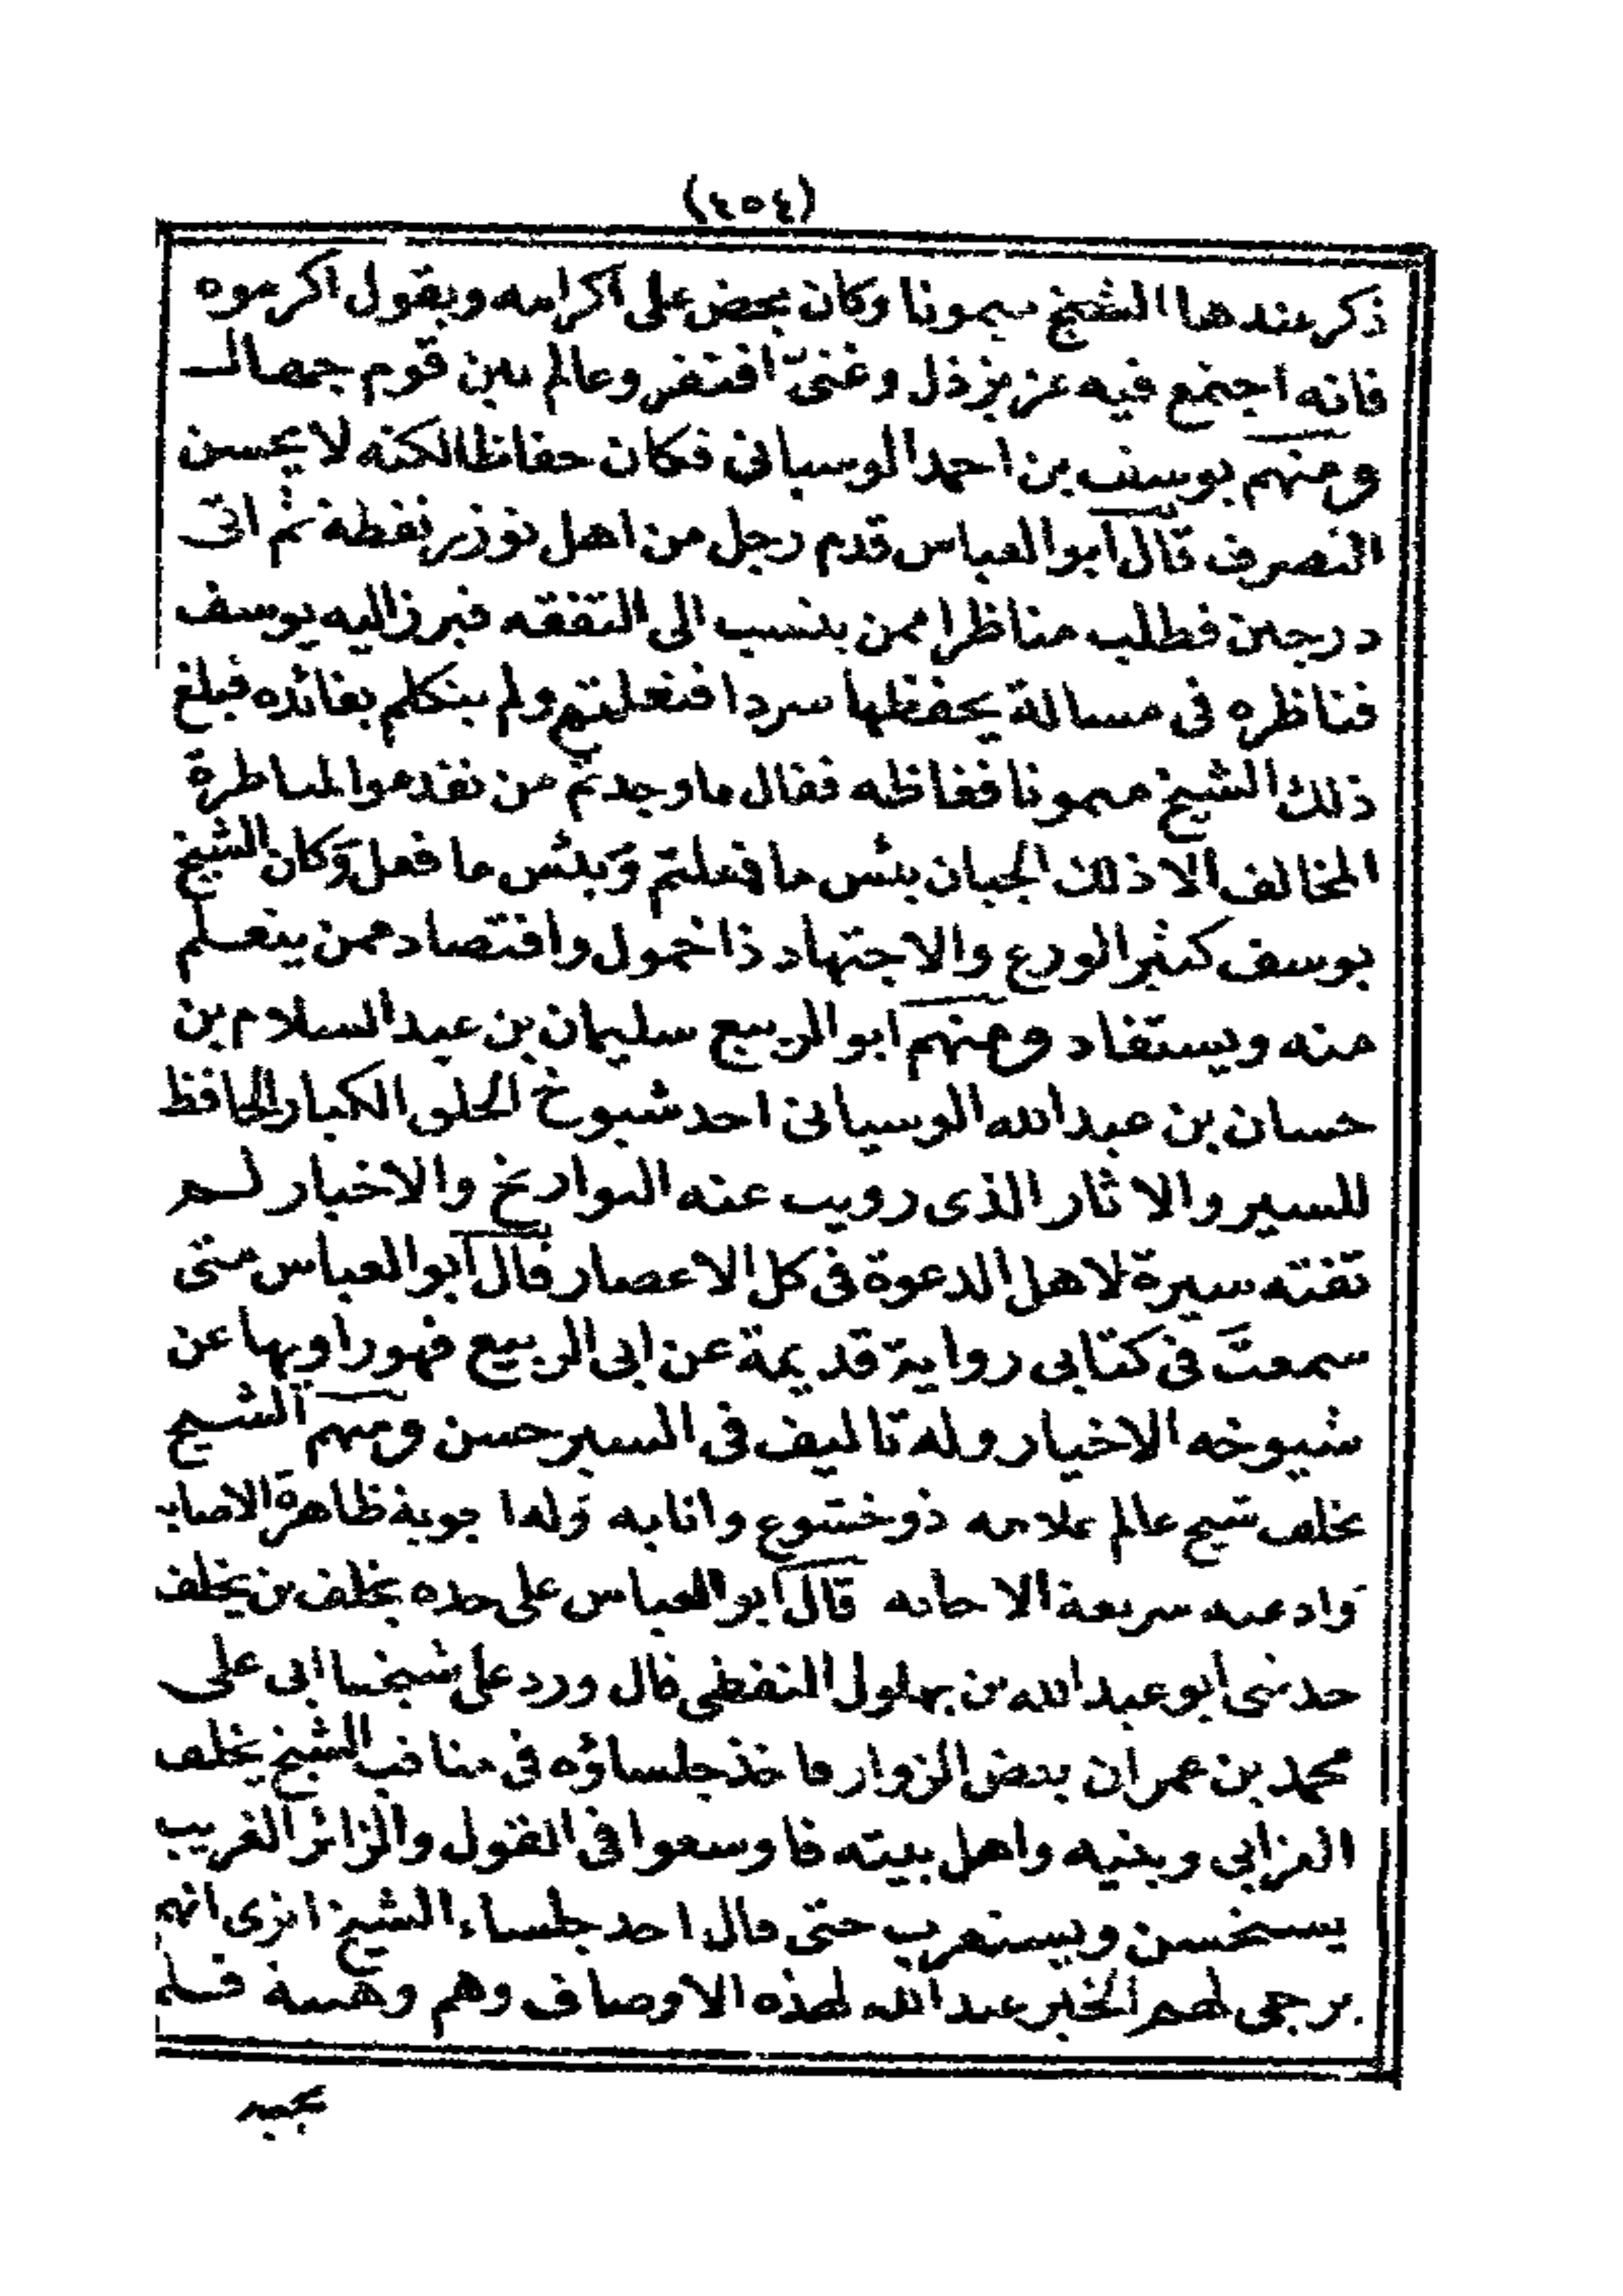 (٤٥٤)
ذكر عندها الشيخ ميمونا وكان يحض على اكرامه ويقول اكرموه
فانه اجتمع فيه عزيز ذل وغنىّ افتقر وعالم بين قوم جهال
ومنهم يوسف بن احمد الوسيانى فكان حفاظا لكنه لا يحسن
التصرف قال ابو العباس قدم رجل من اهل توزر نفطة ثم اتى
درجين فطلب مناظرا ممن ينسب الى التفقه فبرز اليه يوسف
فناظره فى مسالة يحفظها سردا ولم يتكلم بفائده فبلغ
ذلك الشيخ ميمونا فغاظه فقال ما وجدتم من تقدموا لمناظرة
المخالف الا ذلك الجبان بئس ما فعلتم وبئس ما فعل وكان الشيخ
يوسف كثير الورع والاجتهاد ذا خمول واقتصاد ممن يتعلم
منه ويستفاد ومنهم ابو الربيع سليمان بن عبد السلام بن
حسان بن عبد الله الوسيانى احد شيوخ الحلق الكبار الحافظ
للسير والاثار الذى رويت عنه التواريخ والاخبار لم
تفته سيرة لاهل الدعوة فى كل الاعصار قال ابو العباس متى
سمعت فى كتابى رواية قديمة عن ابى الربيع فهو راويها عن
شيوخه الاخيار وله تاليف فى السير حسن ومنهم الشيخ
يخلف شيخ عالم علامه ذو خشوع وانابه وله اجوبة ظاهرة الاصابه
وادعيه سريعة الاجابه قال ابو العباس على جده يخلف بن يخلف
حدثنى ابو عبد الله بن بهلول النفطى قال ورد على شيخنا ابى على
محمد بن عمران بعض الزوار فاخذ جلساؤه فى مناقب الشيخ يخلف
العزابى وبنيه واهل بيته فاوسعوا فى القول والزائر الغريب
يستحسن ويستغرب حتى قال احد جلساء الشيخ اترى انه
يرجى لهم الخير عند الله لهذه الاوصاف وهم وهبية فلم
يجبه